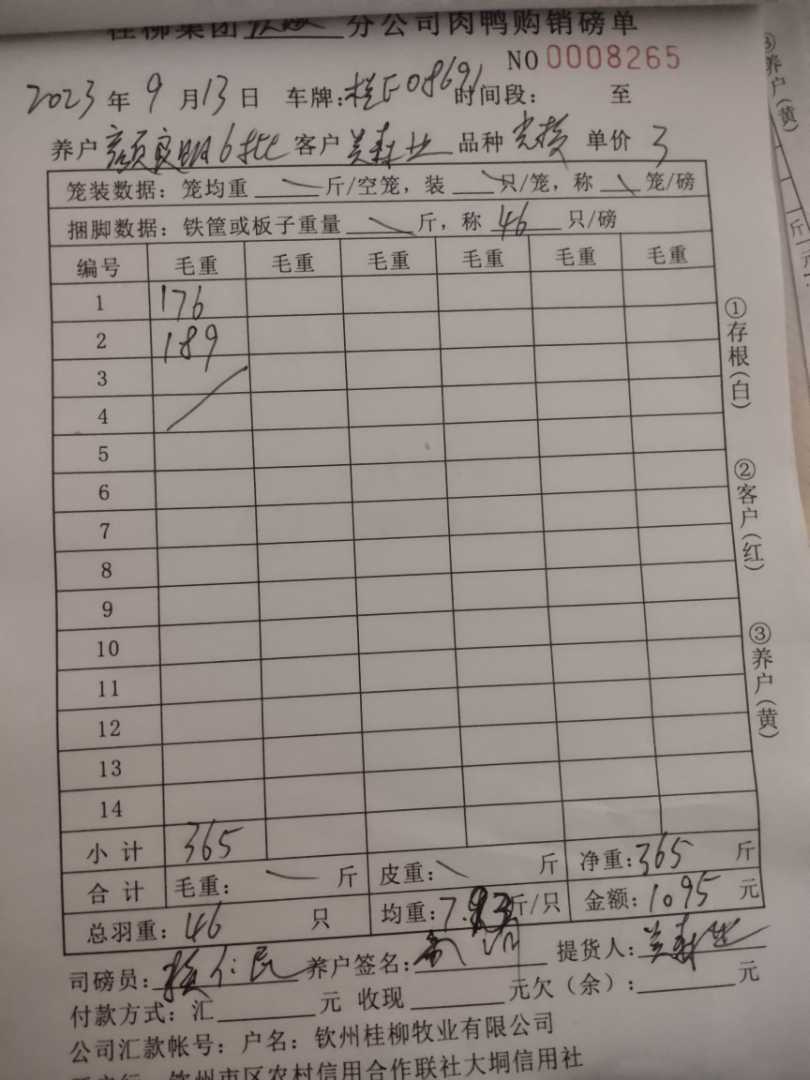 桂柳集团 分公司肉鸭购销磅单
NO 0008265
2023 年 9 月 13 日 车牌:桂F08691 时间段: 至
养户 颜良明6批 客户 吴森 品种 单价 3
笼装数据:笼均重 斤/空笼,装 只/笼,称 笼/磅
捆脚数据:铁筐或板子重量 斤,称 46 只/磅
编号 毛重 毛重 毛重 毛重 毛重 毛重
1 176
2 189
3
4
5
6
7
8
9
10
11
12
13
14
小计 365
合计 毛重: 斤 皮重: 斤 净重:365 斤
总羽重:46 只 均重:7.93斤/只 金额:1095 元
司磅员: 养户签名: 提货人:吴森
付款方式:汇 元 收现 元欠(余): 元
公司汇款帐号:户名:钦州桂柳牧业有限公司
钦州市区农村信用合作联社大垌信用社
①存根(白)
②客户(红)
③养户(黄)
③养户(黄)
斤
元